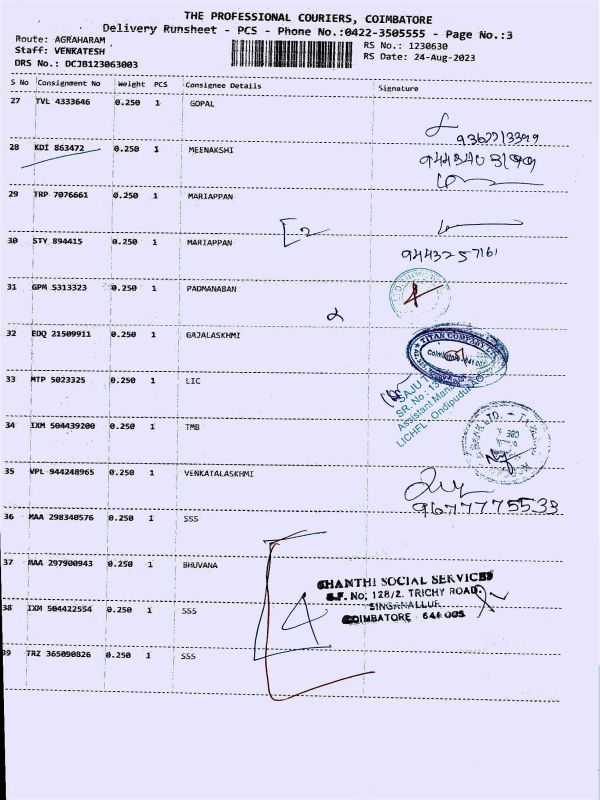 THE PROFESSIONAL COURIERS, COIMBATORE
Delivery Runsheet - PCS - Phone No.:0422-3505555 - Page No.:3
Route: AGRAHARAM
Staff: VENKATESH
DRS No.: DCJB123063003
RS No.: 1230630
RS Date: 24-Aug-2023
S No Consignment No Weight PCS Consignee Details Signature
27 TVL 4333646 0.250 1 GOPAL
28 KDI 863472 0.250 1 MEENAKSHI
29 TRP 7076661 0.250 1 MARIAPPAN
2
30 STY 894415 0.250 1 MARIAPPAN
9443257161
31 GPM 5313323 0.250 1 PADMANABAN
2
32 EDQ 21509911 0.250 1 GAJALASKHMI
TITAN COMPANY
Coimbatore - 641 00
33 MTP 5023325 0.250 1 LIC
SAJU
SR. No : 13
Assistant Mana
LICHFL - Ondipudu
34 IXM 504439200 0.250 1 TMB
BANK LTD. - TA
CBE
35 VPL 944248965 0.250 1 VENKATALASKHMI
9677775533
36 MAA 298340576 0.250 1 SSS
37 MAA 297900943 0.250 1 BHUVANA
SHANTHI SOCIAL SERVICES
S.F. No; 128/2. TRICHY ROAD.
SINGANALLUR
COIMBATORE - 641 005
4
38 IXM 504422554 0.250 1 SSS
39 TRZ 365090826 0.250 1 SSS